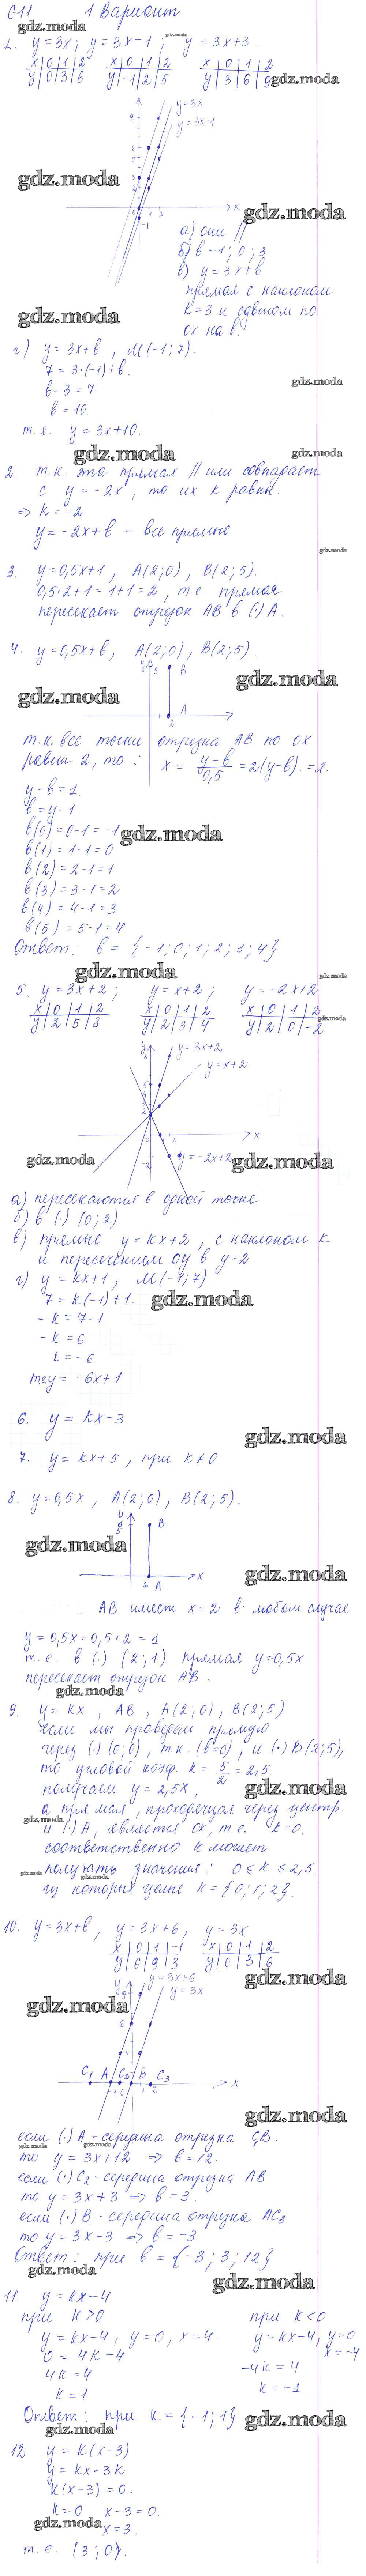 С11 1 Вариант
1. y=3x; y=3x-1; y=3x+3.
x|0|1|2 x|0|1|2 x|0|1|2
y|0|3|6 y|-1|2|5 y|3|6|9
gdz.moda
y=3x
y=3x-1
x
а) они //
б) b -1; 0; 3
в) y=3x+b
прямая с наклоном
k=3 и сдвигом по
ox на b.
г) y=3x+b, M(-1;7).
7=3·(-1)+b.
b-3=7
b=10.
т.е. y=3x+10.
2. т.к. эта прямая // или совпадает
с y=-2x, то их k равны.
⇒ k=-2
y=-2x+b - все прямые
3. y=0,5x+1, A(2;0), B(2;5).
0,5·2+1=1+1=2, т.е. прямая
пересекает отрезок AB в (·) A.
4. y=0,5x+b, A(2;0), B(2;5)
y
5 B
A
2
т.к. все точки отрезка AB по ox
равны 2, то: x = (y-b)/0,5 = 2(y-b) = 2.
y-b=1
b=y-1
b(0)=0-1=-1
b(1)=1-1=0
b(2)=2-1=1
b(3)=3-1=2
b(4)=4-1=3
b(5)=5-1=4
Ответ: b={-1;0;1;2;3;4}
5. y=3x+2; y=x+2; y=-2x+2
x|0|1|2 x|0|1|2 x|0|1|2
y|2|5|8 y|2|3|4 y|2|0|-2
y=3x+2
y=x+2
x
y=-2x+2
а) пересекаются в одной точке
б) в (·) (0;2)
в) прямые y=kx+2, с наклоном k
и пересечением oy в y=2
г) y=kx+1, M(-1;7)
7=k(-1)+1.
-k=7-1
-k=6
k=-6
т.е. y=-6x+1
6. y=kx-3
7. y=kx+5, при k≠0
8. y=0,5x, A(2;0), B(2;5).
y
5 B
2 A x
AB имеет x=2 в любом случае
y=0,5x=0,5·2=1.
т.е. в (·) (2;1) прямая y=0,5x
пересекает отрезок AB.
9. y=kx, AB, A(2;0), B(2;5)
если мы проведем прямую
через (·) (0;0), т.к. (b=0), и (·) B(2;5),
то угловой коэф. k=5/2=2,5.
получаем y=2,5x,
а прямая, проходящая через центр.
и (·) A, является ox, т.е. k=0.
соответственно k может
получать значения: 0≤k≤2,5.
из которых целые k={0;1;2}.
10. y=3x+b, y=3x+6, y=3x
x|0|1|-1 x|0|1|2
y|6|9|3 y|0|3|6
y
y=3x+6
y=3x
C₁ A C₂ B C₃ x
если (·) A - середина отрезка C₁B.
то y=3x+12 ⇒ b=12.
если (·) C₂ - середина отрезка AB
то y=3x+3 ⇒ b=3.
если (·) B - середина отрезка AC₃
то y=3x-3 ⇒ b=-3
Ответ: при b={-3;3;12}
11. y=kx-4
при k>0 при k<0
y=kx-4, y=0, x=4. y=kx-4, y=0
x=-4
0=4k-4 -4k=4
4k=4 k=-1
k=1
Ответ: при k={-1;1}
12. y=k(x-3)
y=kx-3k
k(x-3)=0.
k=0 x-3=0.
x=3.
т.е. (3;0).